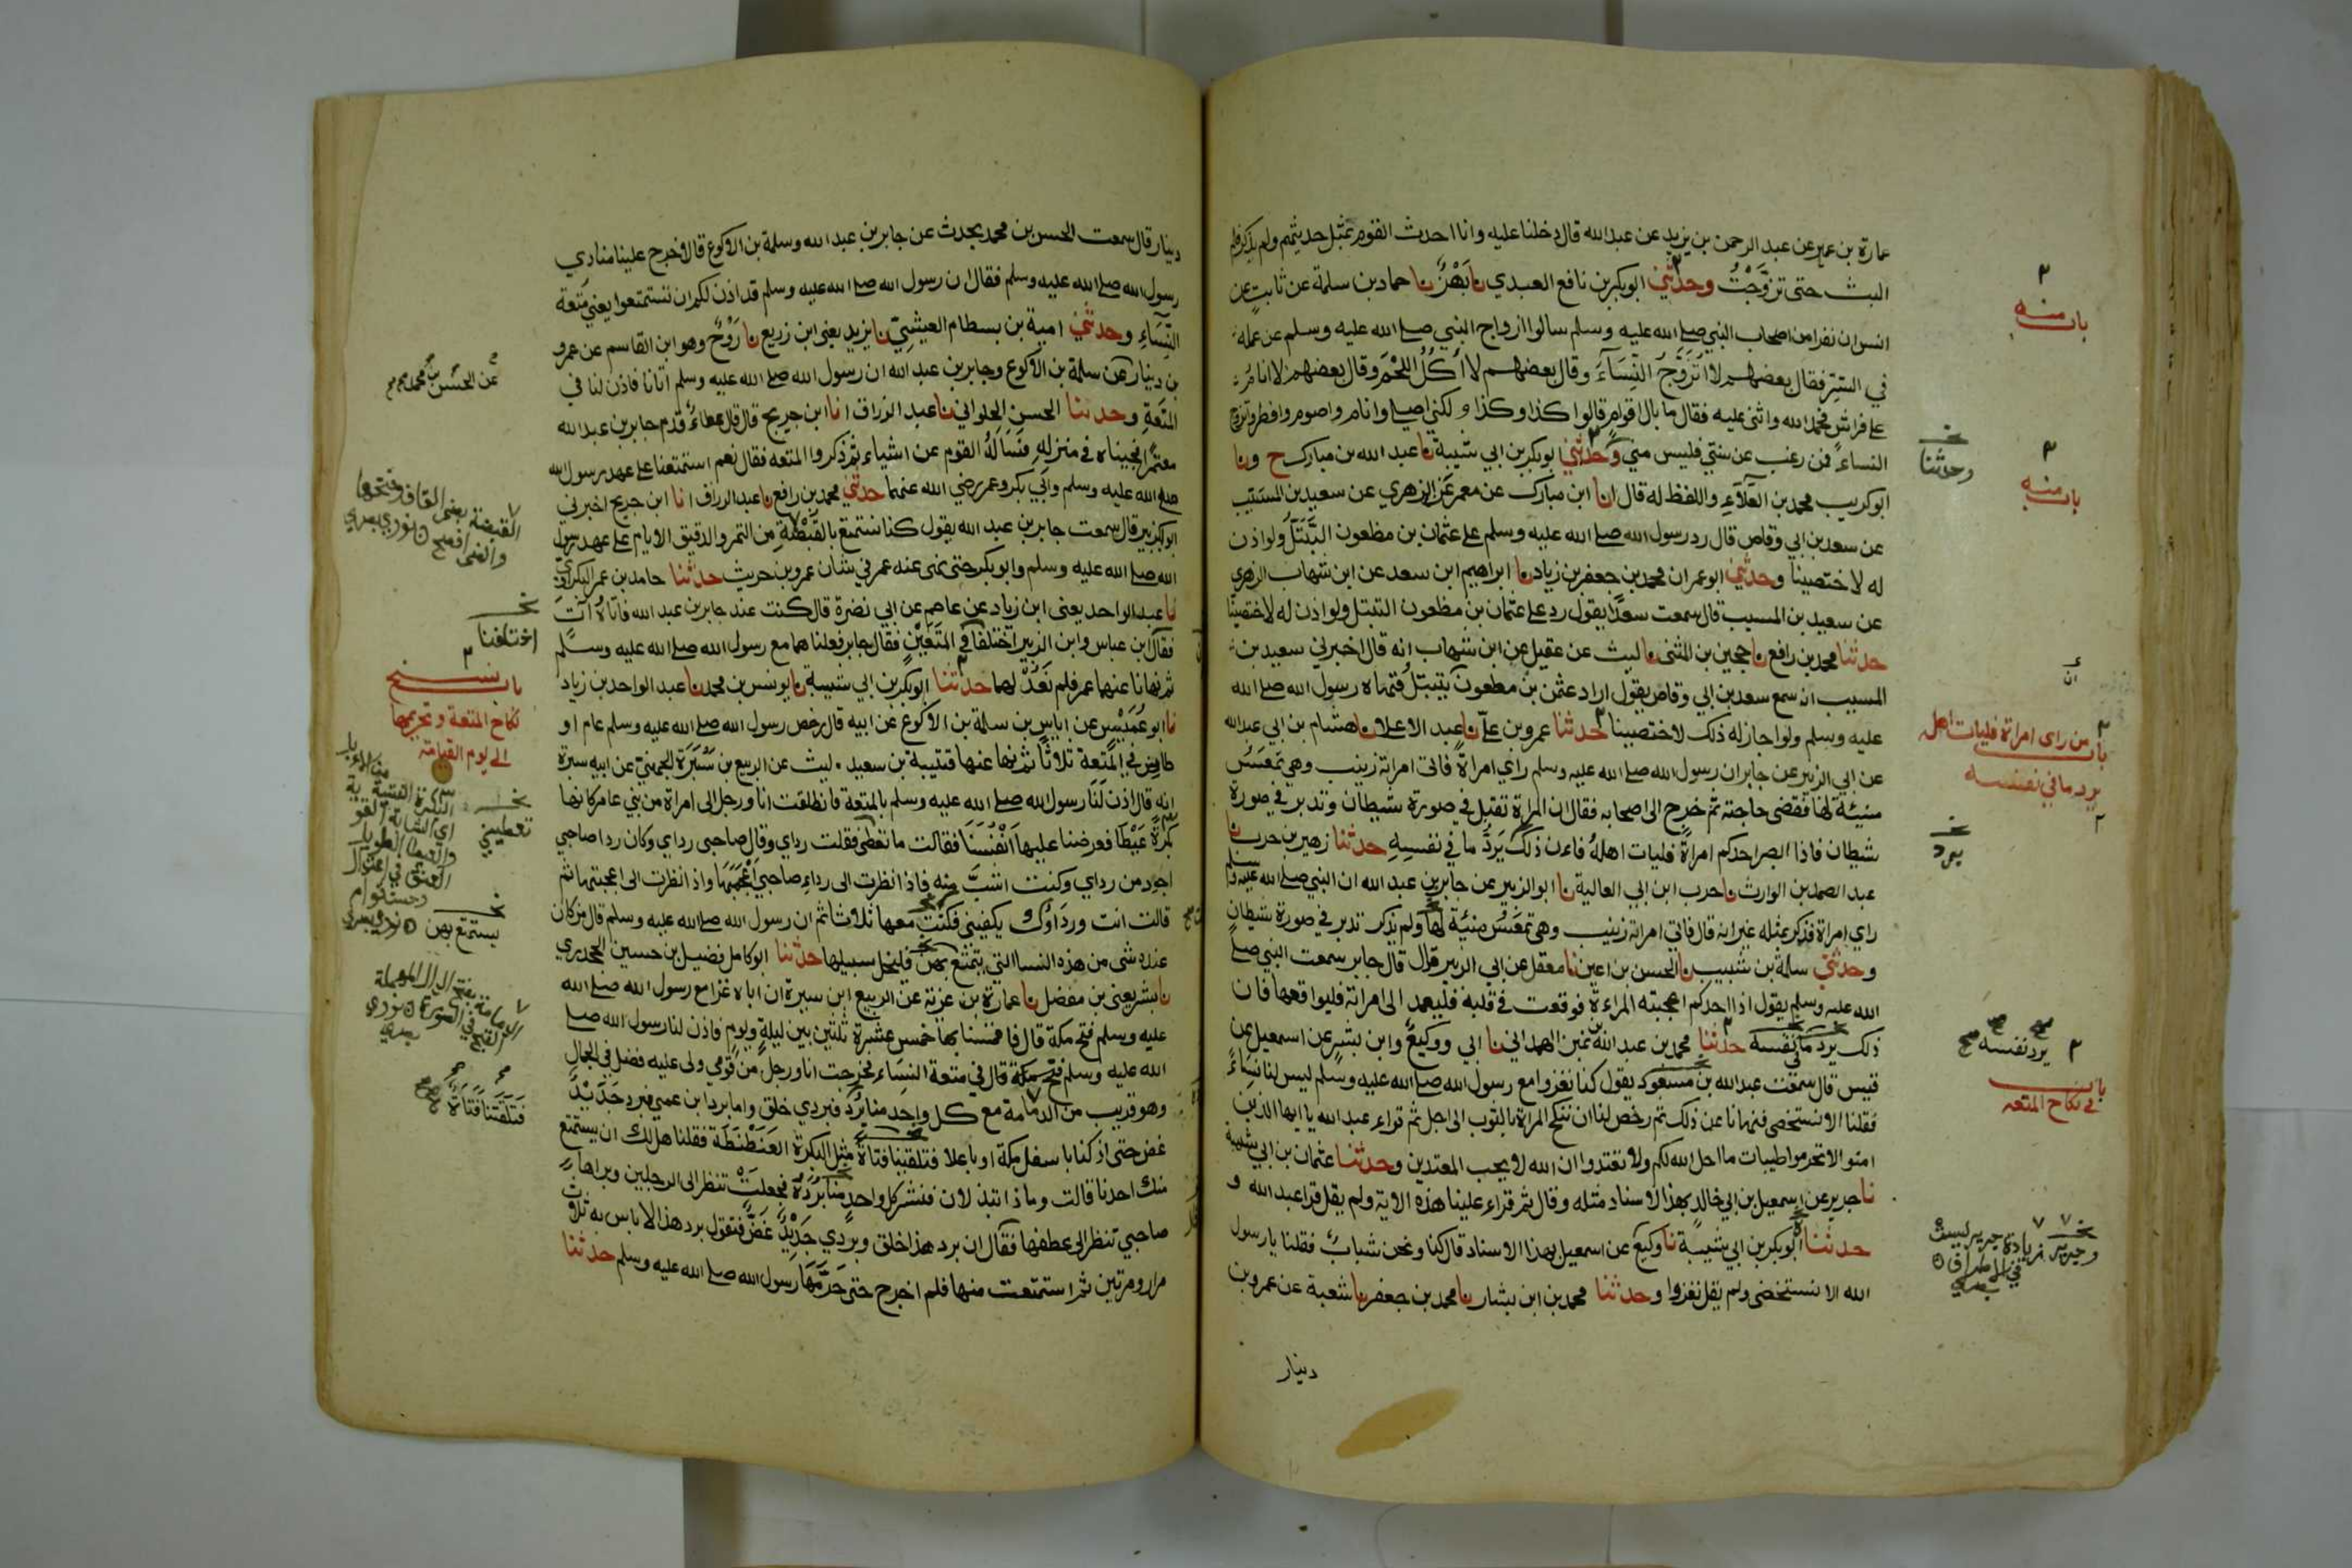 عمارة بن عمير عن عبد الرحمن بن يزيد عن عبدالله قال دخلنا عليه وانا احدث القوم بمثل حديثهم ولم يذكر فلم
البث حتى تزوَّجْتُ وحدثني ابوبكر بن نافع العبدي نا بَهْزٌ نا حماد بن سلمة عن ثابت عن
انس ان نفرا من اصحاب النبي صلى الله عليه وسلم سالوا ازواج النبي صلى الله عليه وسلم عن عمله
في السّرِّ فقال بعضهم لا اتزوّجَ النّسَآءَ وقال بعضهم لا آكُلُ اللّحْمَ وقال بعضهم لا انامُ
على فراشٍ فحمد الله واثنى عليه فقال ما بال اقوامٍ قالوا كذا وكذا ولكني اصلي وانام واصوم وافطر واتزوج
النساءَ فمن رغب عن سنتي فليس مني وحدثني ابوبكر بن ابي شيبة نا عبد الله بن مبارك ح ونا
ابو كريب محمد بن العَلآءِ واللفظ له قال انا ابن مبارك عن معمر عن الزهري عن سعيد بن المسيّب
عن سعد بن ابي وقاص قال رد رسول الله صلى الله عليه وسلم على عثمان بن مظعون التَّبَتّلَ ولو اذن
له لاختصينا وحدثني ابو عمران محمد بن جعفر بن زياد نا ابراهيم ابن سعد عن ابن شهاب الزهري
عن سعيد بن المسيب قال سمعت سعدًا يقول رد على عثمان بن مظعون التبتل ولو اذن له لاختصينا
حدثنا محمد بن رافع نا حجين بن المثنى نا ليث عن عقيل عن ابن شهاب انه قال اخبرني سعيد بن
المسيب انه سمع سعد بن ابي وقاص يقول اراد عثمن بن مظعون يتبتّلُ فنهاه رسول الله صلى الله
عليه وسلم ولو اجاز له ذلك لاختصينا حدثنا عمرو بن عليّ نا عبد الاعلا نا هشام بن ابي عبدالله
عن ابي الزبير عن جابر ان رسول الله صلى الله عليه وسلم راي امراةً فاتى امراته زينب وهي تمعَسُ
منيئة لها فقضى حاجته ثم خرج الى اصحابه فقال ان المراة تقبل في صورة شيطان وتدبر في صورة
شيطان فاذا ابصر احدكم امراةً فليات اهلهُ فان ذلك يَرُدّ ما في نفسِهِ حدثنا زهير بن حرب نا
عبد الصمد بن الوارث نا حرب ابن ابي العالية نا ابو الزبير عن جابر بن عبد الله ان النبي صلى الله عليه وسلم
راي امراة فذكر بمثله غير انه قال فاتى امراته زينب وهي تمعَسُ منيئة لها ولم يذكر تدبر في صورة شيطان
وحدثني سلمة بن شبيب نا الحسن بن اعين نا معقل عن ابي الزبير قال قال جابر سمعت النبي صلى
الله عليه وسلم يقول اذا احدكم اعجبته المراءة فوقعت في قلبه فليعمد الى امراته فليواقعها فان
ذلك يرد مافي نفسه حدثنا محمد بن عبد الله بن نمير الهمداني نا ابي ووكيعٌ وابن بشرٍ عن اسمعيل عن
قيس قال سمعت عبد الله بن مسعود يقول كنا نغزوا مع رسول الله صلى الله عليه وسلم ليس لنا نساءً
فقلنا الا نستخصي فنهانا عن ذلك ثم رخص لنا ان ننكح المراة بالثوب الى اجل ثم قراء عبد الله يا ايها الذين
امنوا لا تحرموا طيبات ما احل الله لكم ولا تعتدوا ان الله لا يحب المعتدين وحدثنا عثمان بن ابي شيبة
نا جرير عن اسمعيل بن ابي خالد بهذا الاسناد مثله وقال ثم قراء علينا هذه الاية ولم يقل قرا عبد الله و
حدثناه ابوبكر بن ابي شيبة نا وكيع عن اسمعيل بهذا الاسناد قال كنا ونحن شبابٌ فقلنا يا رسول
الله الا نستخصي ولم يقل نغزوا وحدثنا محمد بن ابن بشار نا محمد بن جعفر نا شعبة عن عمرو بن
دينار
باب منه
وحدثنا
باب منه
باب من راى امراة فليات اهله
يرد ما في نفسه
يرد
يرد نفسه صح
باب
في نكاح المتعه
وجرير زيادة جرير ليست
في الاطراف
دينار قال سمعت الحسن بن محمد يحدث عن جابر بن عبد الله وسلمة بن الاكوع قالا خرج علينا منادي
رسول الله صلى الله عليه وسلم فقال ان رسول الله صلى الله عليه وسلم قد اذن لكم ان تستمتعوا يعني متعة
النّسَآءِ وحدثني امية بن بسطام العيشيّ نا يزيد يعني ابن زريع نا رَوْحٌ وهو ابن القاسم عن عمرو
بن دينار عن سلمة بن الاكوع وجابر بن عبد الله ان رسول الله صلى الله عليه وسلم اتانا فاذن لنا في
المتعةِ وحدثنا الحسن الحلواني نا عبد الرزاق انا ابن جريج قال قال عطاءٌ قدم جابر بن عبد الله
معتمرًا فجيناه في منزلهِ فسَاَلَهُ القوم عن اشياء ثم ذكروا المتعه فقال نعم استمتعنا على عهد رسول الله
صلى الله عليه وسلم وابي بكر وعمر رضي الله عنهما حدثني محمد بن رافع نا عبد الرزاق انا ابن جريج اخبرني
ابو الزبير قال سمعت جابر بن عبد الله يقول كنا نستمتع بالقَبْضَةِ من التمر والدقيق الايام على عهد رسول
الله صلى الله عليه وسلم وابو بكر حتى نهى عنه عمر في شان عمرو بن حريث حدثنا حامد بن عمر البكراوي
نا عبد الواحد يعني ابن زياد عن عاصم عن ابي نضرة قال كنت عند جابر بن عبد الله فاتاهُ آتٍ
فقال ابن عباس وابن الزبير اختلفا في المتعَتَيْنِ فقال جابر فعلناهما مع رسول الله صلى الله عليه وسلّم
ثم نهانا عنهما عمر فلم نَعُدْ لهما حدثنا ابوبكر بن ابي شيبة نا يونس بن محمد نا عبد الواحد بن زياد
نا ابو عُمَيْسٍ عن اياس بن سلمة بن الاكوع عن ابيه قال رخص رسول الله صلى الله عليه وسلم عام او
طاس في المتعة ثلاثًا ثم نها عنها قتيبة بن سعيد ليث عن الربيع بن سَبْرَةَ الجهنيّ عن ابيه سبرة
انه قال اذن لَنَا رسول الله صلى الله عليه وسلم بالمتعة فانطلقت انا ورجل الى امراة من بني عامر كانها
بكرةٌ عَيْطَا فعرضنا عليها اَنْفُسَنَا فقالت ما تعطي فقلت رداي وقال صاحبي رداي وكان ردا صاحبي
اجود من رداي وكنت اشبَّ منه فاذا نظرت الى رداءِ صاحبي اعجَبَهَا واذا نظرت الى اعجبتها ثم
قالت انت ورداؤك يكفيني فكنت معها ثلاثا ثم ان رسول الله صلى الله عليه وسلم قال من كان
عنده شى من هذه النسا التي يتمتع بهن فليخل سبيلها حدثنا ابو كامل فضيل بن حسين الجحدري
نا بشر يعني بن مفضل نا عمارة بن غزية عن الربيع ابن سبرة ان اباه غزا مع رسول الله صلى الله
عليه وسلم فتح مكة قال فاقمنا بها خمس عشرة ثلثين بين ليلةٍ ويومٍ فاذن لنا رسول الله صلى
الله عليه وسلم في متعة النساء فخرجت انا ورجلٌ من قومي ولى عليه فضل في الجمالِ
وهو قريب من الدمامة مع كل واحدٍ منا بُرْدٌ فبردي خلق واما برد ابن عمي فبرد جَدِيْدٌ
غض حتى اذ كنا باسفل مكة او باعلا فتلقينا فتاة مثل البكرة العَنَطْنَطَةِ فقلنا هل لك ان يستمتع
منك احدنا قالت وماذا تبذلان فنشر كل واحدٍ منا بُرْدَهُ فجعلتْ تنظر الى الرجلين ويراها
صاحبي تنظر الى عطفها فقال ان برد هذا خلق وبردي جَدِيْدٌ غَضٌّ فتقول برد هذا لا باس به ثلاث
مرار ومرتين ثم استمتعت منها فلم اخرج حتى حَرَّمَهَا رسول الله صلى الله عليه وسلم حدثنا
عن الحسن بن محمد
القبضة بضم القاف وفتحها
والضم افصح نووي
اختلفنا
باب نسخ
نكاح المتعة وتحريمها
الى يوم القيامة
تعطيني
البكرة الفتية
يستمتع بهن
الدمامة بفتح الدال المهملة
القبح في الصورة نووي
فتلقتنا فتاةٌ